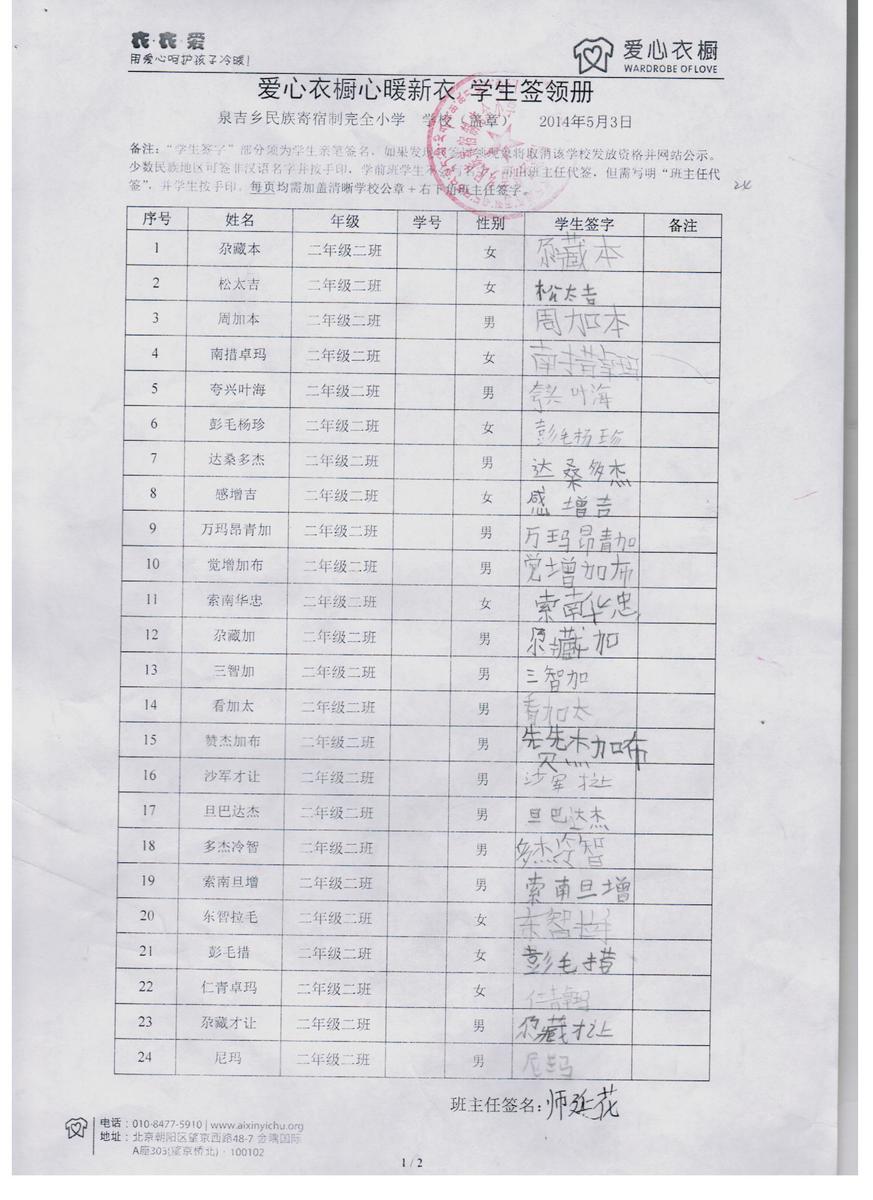 衣·衣·爱
用爱心呵护孩子冷暖!
爱心衣橱
WARDROBE OF LOVE
爱心衣橱心暖新衣 学生签领册
泉吉乡民族寄宿制完全小学 学校（盖章） 2014年5月3日
备注：“学生签字”部分须为学生亲笔签名，如果发现 现象将取消该学校发放资格并网站公示。
少数民族地区可签非汉语名字并按手印，学前班学生 可由班主任代签，但需写明“班主任代
签”，并学生按手印。每页均需加盖清晰学校公章+右下角班主任签字。
24
序号 姓名 年级 学号 性别 学生签字 备注
1 尕藏本 二年级二班 女 尕藏本
2 松太吉 二年级二班 女 松太吉
3 周加本 二年级二班 男 周加本
4 南措卓玛 二年级二班 女 南措卓玛
5 夸兴叶海 二年级二班 男 夸兴叶海
6 彭毛杨珍 二年级二班 女 彭毛杨珍
7 达桑多杰 二年级二班 男 达桑多杰
8 感增吉 二年级二班 女 感增吉
9 万玛昂青加 二年级二班 男 万玛昂青加
10 觉增加布 二年级二班 男 觉增加布
11 索南华忠 二年级二班 女 索南华忠
12 尕藏加 二年级二班 男 尕藏加
13 三智加 二年级二班 男 三智加
14 看加太 二年级二班 男 看加太
15 赞杰加布 二年级二班 男 赞杰加布
16 沙军才让 二年级二班 男 沙军才让
17 旦巴达杰 二年级二班 男 旦巴达杰
18 多杰冷智 二年级二班 男 多杰冷智
19 索南旦增 二年级二班 男 索南旦增
20 东智拉毛 二年级二班 女 东智拉毛
21 彭毛措 二年级二班 女 彭毛措
22 仁青卓玛 二年级二班 女 仁青卓玛
23 尕藏才让 二年级二班 男 尕藏才让
24 尼玛 二年级二班 男 尼玛
班主任签名：师延花
电话：010-8477-5910 | www.aixinyichu.org
地址：北京朝阳区望京西路48-7 金隅国际
A座303(望京桥北)·100102
1 / 2